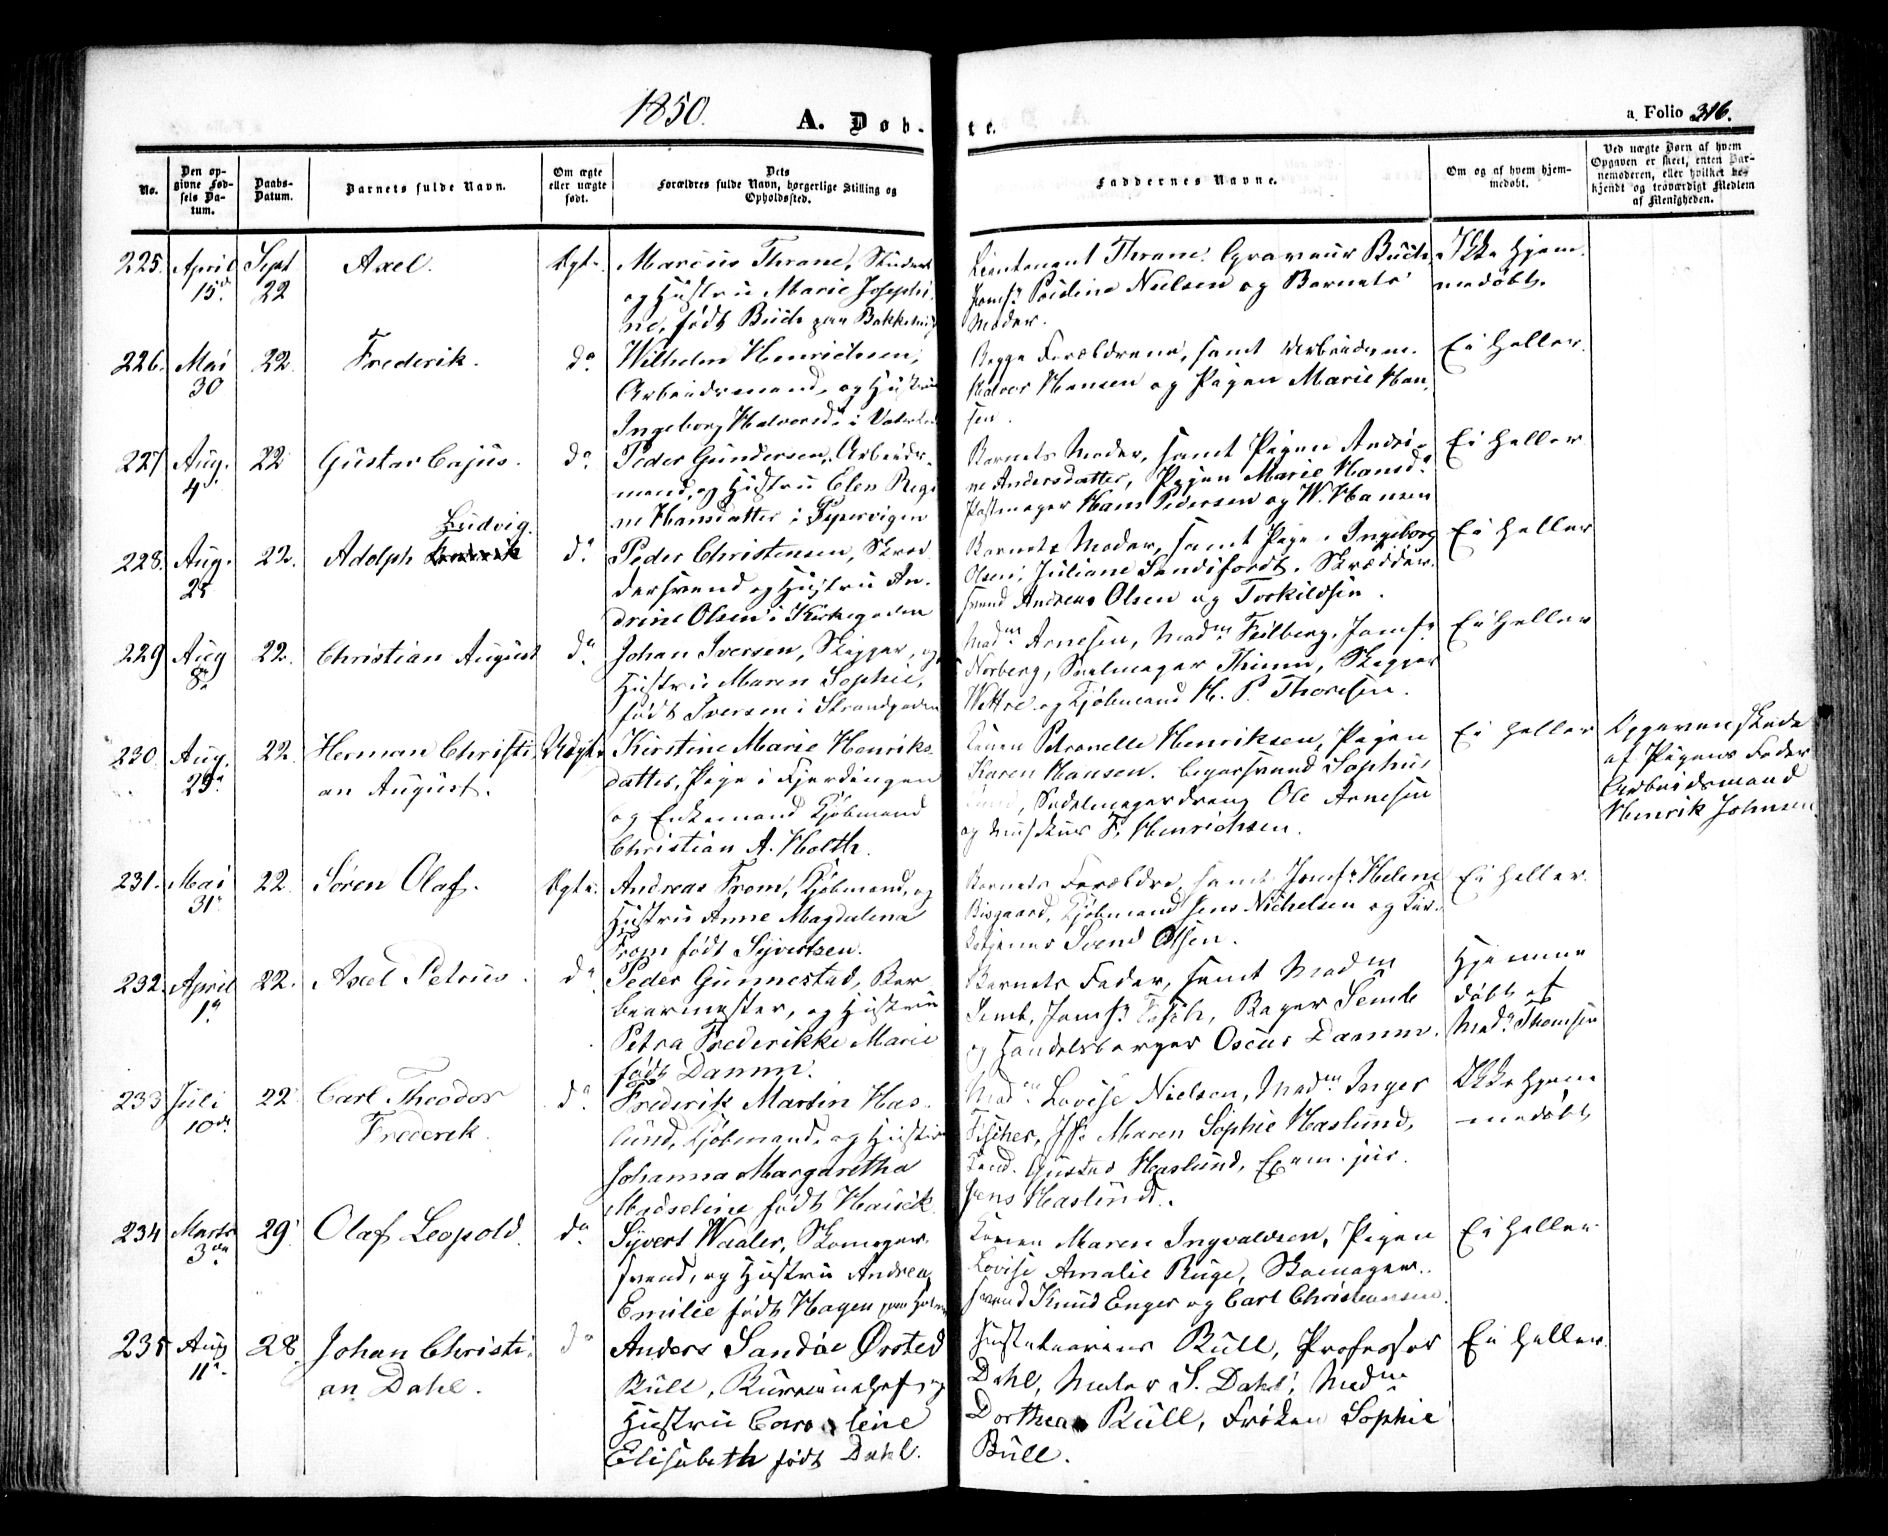 1850.
A. Døb-te.
a. Folio 316.
No.
Den opgivne Fødsels Datum.
Daabs-Datum.
Barnets fulde Navn.
Om ægte eller uægte født.
Dets Forældres fulde Navn, borgerlige Stilling og Opholdssted.
Faddernes Navne.
Om og af hvem hjemmedøbt.
Ved uægte Børn af hvem Opgaven er skeet, enten Barnemoderen, eller hvilket bekjendt og troværdigt Medlem af Menigheden.
225. April 15d. Sept 22 Axel. Ægte.
Marcus Thrane, Student
og Hustru Marie Josephi-
ne, født Buch paa
Lieutenant Thrane, Graveur Buch,
Jomfr. Nielsen og Barnets
Moder.
Ikke hjem-
medøbt.
226. Mai 30 22. Frederik. do.
Wilhelm Henrichsen,
Arbeidsmand, og Hustru
Ingeborg Halvorsd. i
Begge Forældrene, samt Arbeidsm.
Halvor Hansen og Pigen Marie Han-
sen.
Ei heller.
227. Aug. 4 22 Gustav Cajus. do.
Peder Gundersen, Arbeids-
mand, og Hustru Elen Regi-
ne Hansdatter i Pipervigen
Barnets Moder, samt Pigen Andri-
ne Andersdatter, Pigen Marie Hansd.
Hans Pedersen og W. Hansen
Ei heller
228. Aug. 25 22. Adolph Ludvig. do.
Peder Christensen, Skræd-
dersvend og Hustru An-
drine Olsen i Kirkegaden
Barnets Moder, samt Pige Ingeborg
Olsen, Juliane Sandsfordt. Skrædder-
svend Andreas Olsen og Torkildsen.
Ei heller
229 Aug 8de 22. Christian August do.
Johan Iversen, Skipper, og
Hustru Maren Sophie,
født Iversen i Strandgaden
Madm Arnesen, Madm Feilberg, Jomfr.
Norberg, Seilmager Thimm, Skipper
Wettre og Kjøbmand H. P. Thoresen.
Ei heller
230. Aug. 29de 22. Herman Christi-
an August. Uægte
Kirstine Marie Henriks-
datter, Pige i Fjerdingen
og Enkemand Kjøbmand
Christian A. Holth.
Konen Petronelle Henriksen, Pigen
Karen Hansen. Sophus
Sadelmagerdreng Ole Arnesen
og Musikus F. Henrichsen.
Ei heller
Opgaven skede
af Pigens Fader
Arbeidsmand
Henrik Johnsen.
231. Mai 31te 22. Søren Olaf. Ægte.
Andreas From, Kjøbmand, og
Hustru Anne Magdalena
From født Syvertsen.
Barnets Forældre, samt Jomfr. Helene
Bisgaard, Kjøbmand Jens Nichelsen og
Svend Olsen.
Ei heller.
232. April 1te 22. Axel Petrus. do
Peder Gunnestad, Bar-
beermester, og Hustru
Petra Frederikke Marie
født Damm.
Barnets Fader, samt Madm
Semb, Jomfr. Fasch, Bager Semb
og Handelsborger Oscar Damm.
Hjemme
døbt af
Mad. Thomsen
233 Juli 10de 22 Carl Theodor
Frederik. do.
Frederik Martin Has-
lund, Kjøbmand, og Hustru
Johanna Margaretha
Madseline født Hauch.
Madm Lovise Nielsen, Madm Inger
Fischer, Jfr. Maren Sophie Haslund,
Gustav Haslund, Exam. jur.
Jens Haslund.
Ikke hjem-
medøbt
234 Marts 3die 29 Olaf Leopold. do
Syvert Waaler, Skomager-
svend, og Hustru Andrea
Emilie født Hagen paa
Konen Maren Ingvaldsen, Pigen
Lovise Amalie Ruge, Skomager-
svend Knud Enger og Carl Christiansen.
Ei heller
235 Aug 11te 28. Johan Christi-
an Dahl. do
Anders Sandøe Ørsted
Bull, og
Hustru Caroline
Elisabeth født Dahl.
Bull, Professor
Dahl, Maler S. Dahl, Madm
Dorthea Bull, Frøken Sophie
Bull.
Ei heller.